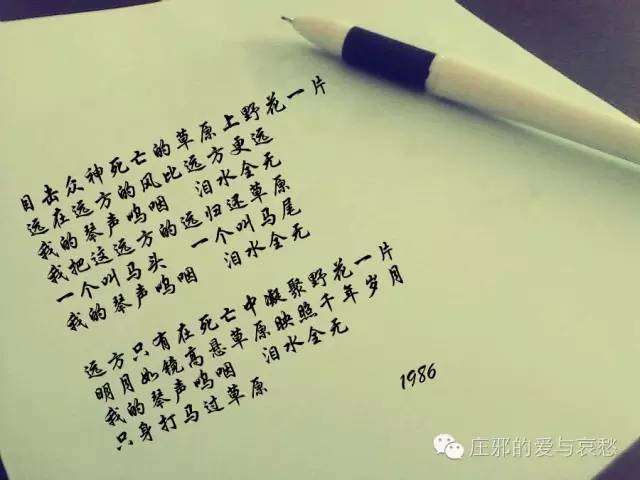 目击众神死亡的草原上野花一片
远在远方的风比远方更远
我的琴声呜咽 泪水全无
我把这远方的远归还草原
一个叫马头 一个叫马尾
我的琴声呜咽 泪水全无
远方只有在死亡中凝聚野花一片
明月如镜高悬草原映照千年岁月
我的琴声呜咽 泪水全无
只身打马过草原
1986
庄邪的爱与哀愁